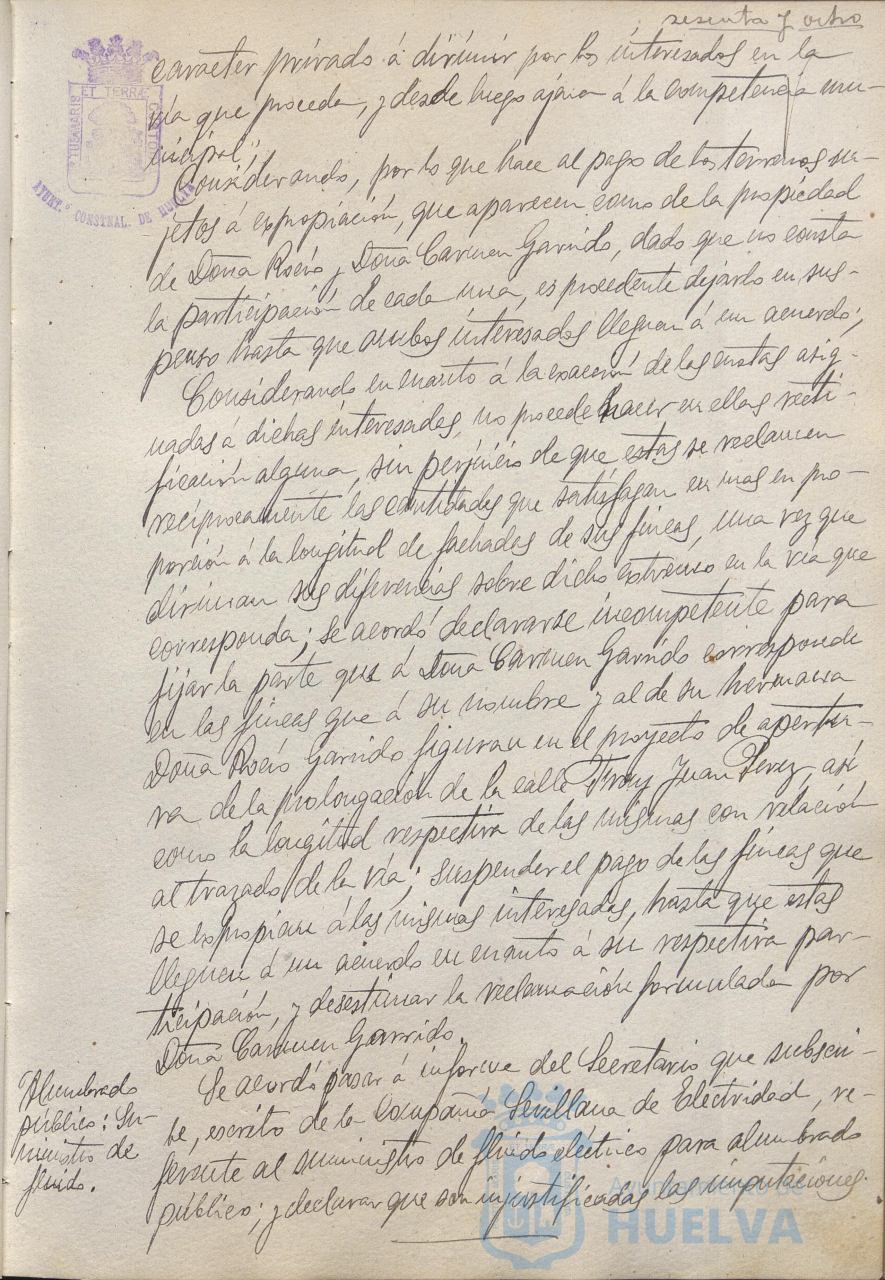 sesenta y ocho
ET TERRÆ
AYUNT.º CONSTNAL. DE HUELVA
caracter privado á dirimir por los interesados en la
via que proceda, y desde luego ajena á la competencia mu-
nicipal".
Considerando, por lo que hace al pago de los terrenos su-
jetos á expropiación, que aparecen como de la propiedad
de Doña Rocío y Doña Carmen Garrido, dado que no consta
la participación de cada una, es procedente dejarlo en sus-
penso hasta que ambos interesados lleguen á un acuerdo;
Considerando en cuanto á la exacción de las cuotas asig-
nadas á dichas interesadas, no procede hacer en ellas recti-
ficación alguna, sin perjuicio de que estas se reclamen
reciprocamente las cantidades que satisfagan en mas en pro-
porción á la longitud de fachadas de sus fincas, una vez que
diriman sus diferencias sobre dicho extremo en la via que
corresponda; se acordó declararse incompetente para
fijar la parte que á Doña Carmen Garrido corresponde
en las fincas que á su nombre y al de su hermana
Doña Rocío Garrido figuran en el proyecto de apertu-
ra de la prolongación de la calle Fray Juan Perez, asi
como la longitud respectiva de las mismas con relación
al trazado de la via; suspender el pago de las fincas que
se expropian á las mismas interesadas, hasta que estas
lleguen á un acuerdo en cuanto á su respectiva par-
ticipación, y desestimar la reclamación formulada por
Doña Carmen Garrido.
Alumbrado
público: Su-
ministro de
fluido.
Se acordó pasar á informe del Secretario que subscri-
be, escrito de la Compañia Sevillana de Electricidad, re-
ferente al suministro de fluido eléctrico para alumbrado
público; y declarar que son injustificadas las imputaciones
Ayuntamiento de
HUELVA